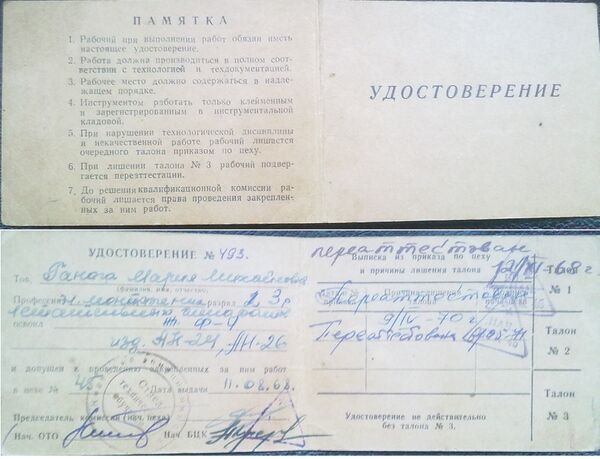 ПАМЯТКА
1. Рабочий при выполнении работ обязан иметь
настоящее удостоверение.
2. Работа должна производиться в полном соот-
ветствии с технологией и техдокументацией.
3. Рабочее место должно содержаться в надле-
жащем порядке.
4. Инструментом работать только клейменным
и зарегистрированным в инструментальной
кладовой.
5. При нарушении технологической дисциплины
и некачественной работе рабочий лишается
очередного талона приказом по цеху.
6. При лишении талона № 3 рабочий подвер-
гается переаттестации.
7. До решения квалификационной комиссии ра-
бочий лишается права проведения закреплен-
ных за ним работ.
УДОСТОВЕРЕНИЕ
УДОСТОВЕРЕНИЕ № 493.
Тов. Мария Михайловна
(фамилия, имя, отчество)
Профессия разряд 2, 3 р
освоил
изд. АН-24, АН-26
и допущен к проведению закрепленных за ним работ
в цехе № 45 Дата выдачи 11.08.68.
Председатель комиссии (нач. цеха)
Нач. ОТО Нач. БЦК
переаттестован
Выписка из приказа по цеху
и причины лишения талона
Талон
№ 1
Переаттестован
9/IV-70 г
Талон
№ 2
Талон
№ 3
Удостоверение не действительно
без талона № 3.